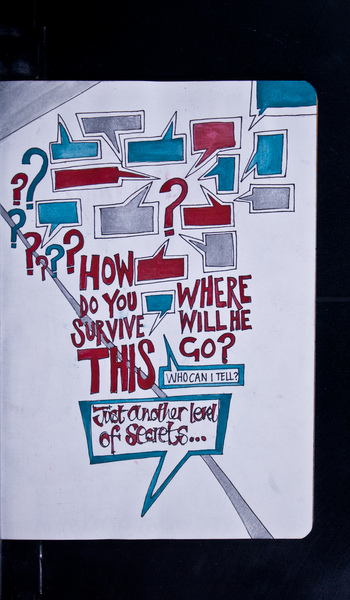 ? ? ? ? ? ? ? ?
HOW
DO YOU
SURVIVE
THIS
WHERE
WILL HE
GO?
WHO CAN I TELL?
Just another level
of secrets...